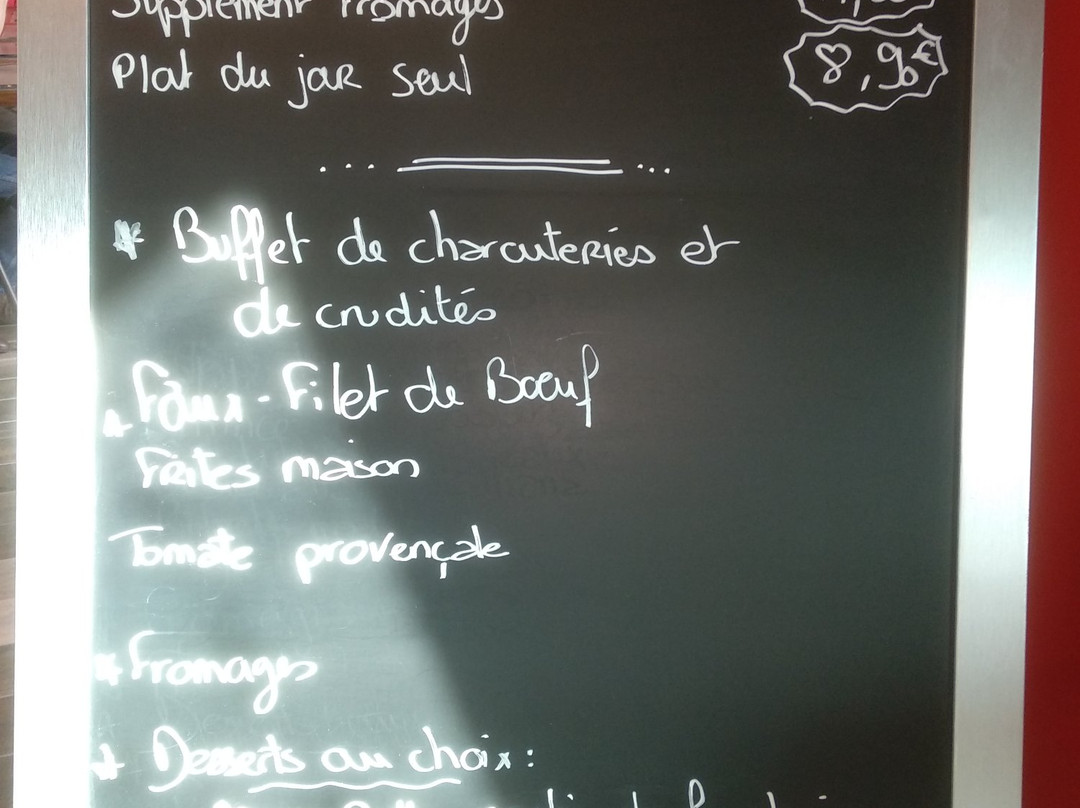 Supplément Fromages
Plat du jar seul 8,90€
... ...
* Buffet de charcuteries et
de crudités
* Faux-Filet de Boeuf
Frites maison
Tomate provençale
* Fromages
* Desserts au choix: